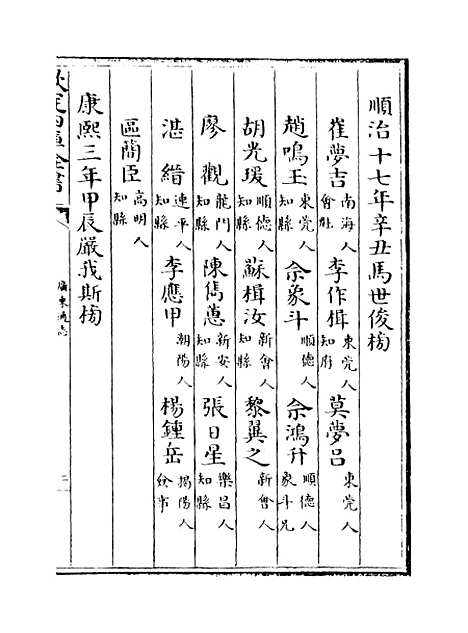 順治十七年辛丑馬世俊榜
崔夢吉 南海人會魁 李作楫 東莞人知府 莫夢呂 東莞人
趙鳴玉 東莞人知縣 佘象斗 順德人 佘鴻升 順德人象斗兄
胡光瑗 順德人知縣 蘇楫汝 新會人知縣 黎翼之 新會人
廖觀 龍門人知縣 陳雋蕙 新安人知縣 張日星 樂昌人知縣
湛縉 連平人知縣 李應甲 潮陽人 楊鍾岳 揭陽人僉事
區簡臣 高明人知縣
康熙三年甲辰嚴我斯榜
欽定四庫全書 廣東通志